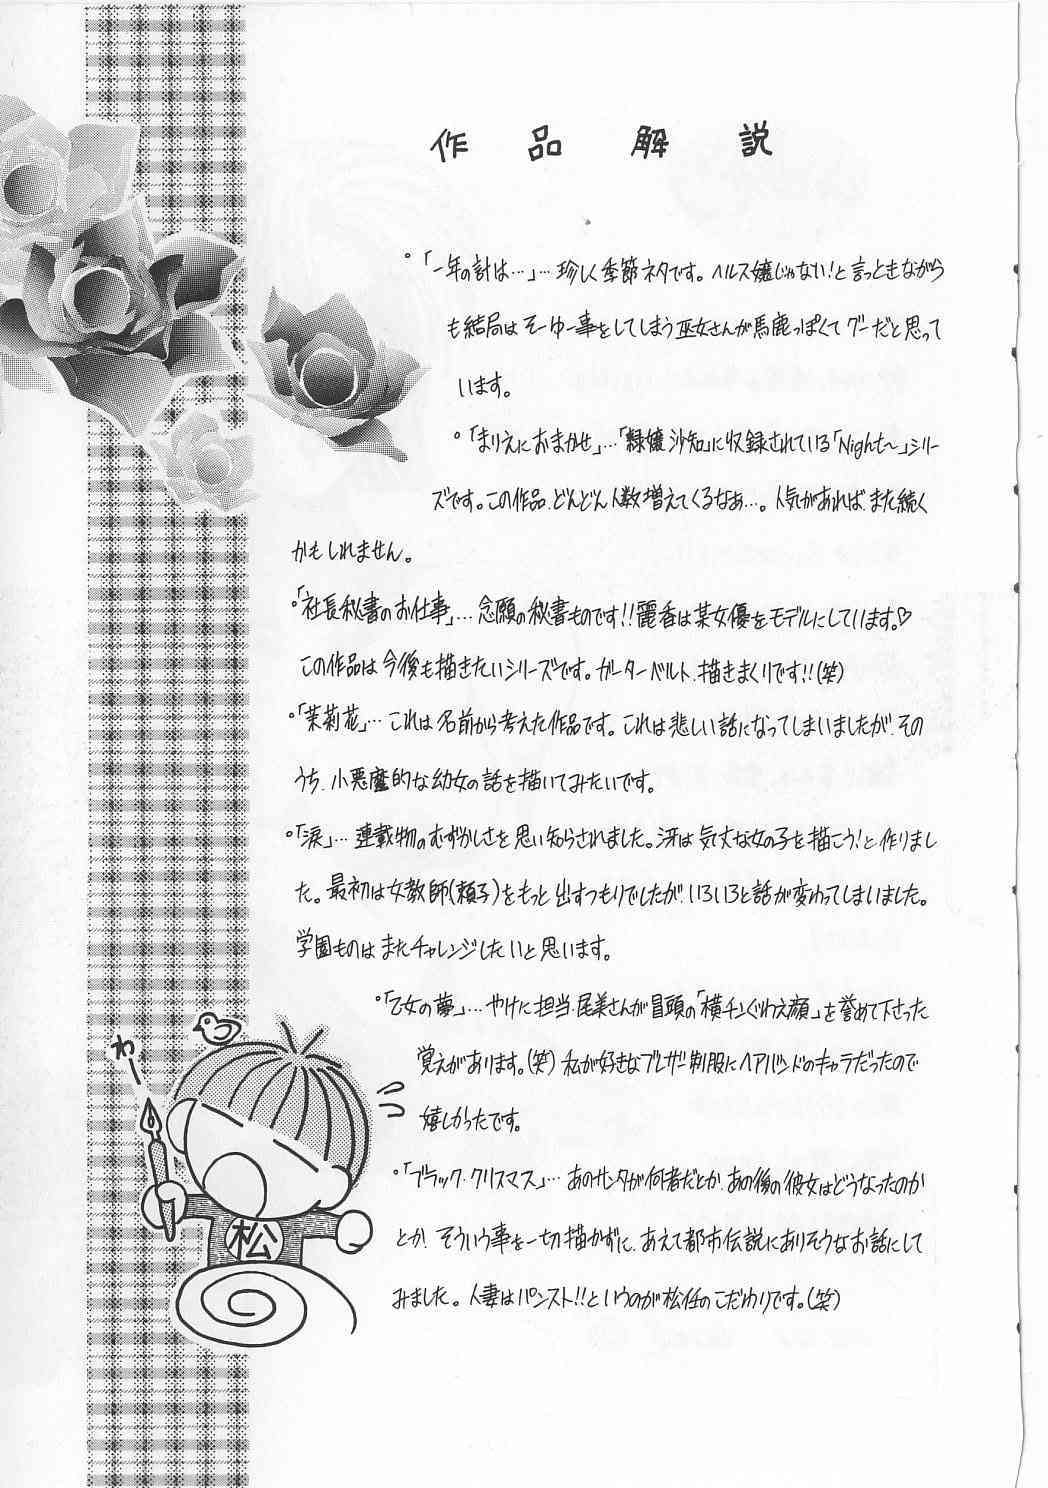 作品解説
・「一年の計は…」…珍しく季節ネタです。ヘルス嬢じゃない！と言っときながら
も結局はそーゆー事をしてしまう巫女さんが馬鹿っぽくてグーだと思って
います。
・「まりえにおまかせ」…「緑嬢沙知」に収録されている「Night〜」シリー
ズです。この作品、どんどん人数増えてくるなぁ…。人気があれば、また続く
かもしれません。
・「社長秘書のお仕事」…念願の秘書ものです!!麗香は某女優をモデルにしています。♡
この作品は今後も描きたいシリーズです。ガーターベルト、描きまくりです!!(笑)
・「茉莉花」…これは名前から考えた作品です。これは悲しい話になってしまいましたが、その
うち、小悪魔的な幼女の話を描いてみたいです。
・「涙」…連載物のむずかしさを思い知らされました。冴は気丈な女の子を描こう!と作りまし
た。最初は女教師(頼子)をもっと出すつもりでしたが、いろいろと話が変わってしまいました。
学園ものはまたチャレンジしたいと思います。
・「乙女の夢」…やけに担当・尾美さんが冒頭の「横チンぐわえ顔」を誉めて下さった
覚えがあります。(笑)私が好きなブレザー制服にヘアバンドのキャラだったので
嬉しかったです。
・「ブラック・クリスマス」…あのサンタが何者だとか、あの後の彼女はどうなったのか
とか、そういう事を一切描かずに、あえて都市伝説にありそうなお話にして
みました。人妻はパンスト!!というのが松任のこだわりです。(笑)
わー
松